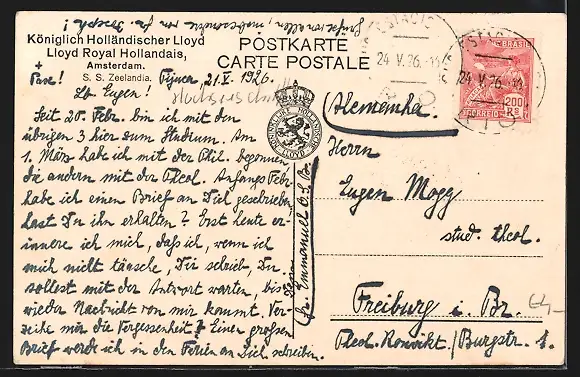 Grüße von allen, insbesondere von fr. Joseph!
Königlich Holländischer Lloyd
Lloyd Royal Hollandais,
Amsterdam.
S. S. Zeelandia.
POSTKARTE
CARTE POSTALE
+
Pax! 21. V. 1926.
Lb. Eugen!
Seit 20. Febr. bin ich mit den
übrigen 3 hier zum Studium. Am
1. März habe ich mit der Phil. begonnen
die andern mit der Theol. Anfangs Febr.
habe ich einen Brief an Dich geschrieben
hast Du ihn erhalten? Erst heute er-
innere ich mich, daß ich, wenn ich
mich nicht täusche, Dir schrieb, Du
sollest mit der Antwort warten, bis
wieder Nachricht von mir kommt. Ver-
zeihe mir die Vergessenheit! Einen großen
Brief werde ich in den Ferien an Dich schreiben.
Dein
fr. Emmanuel O. S. B.
KONINKLIJKE HOLLANDSCHE LLOYD
24 V. 26
24 V. 26
BRASIL
200 Rs
CORREIO
Alemanha.
Herrn
Eugen Mogg
stud. theol.
Freiburg i. Br.
Theol. Konvikt / Burgstr. 1.